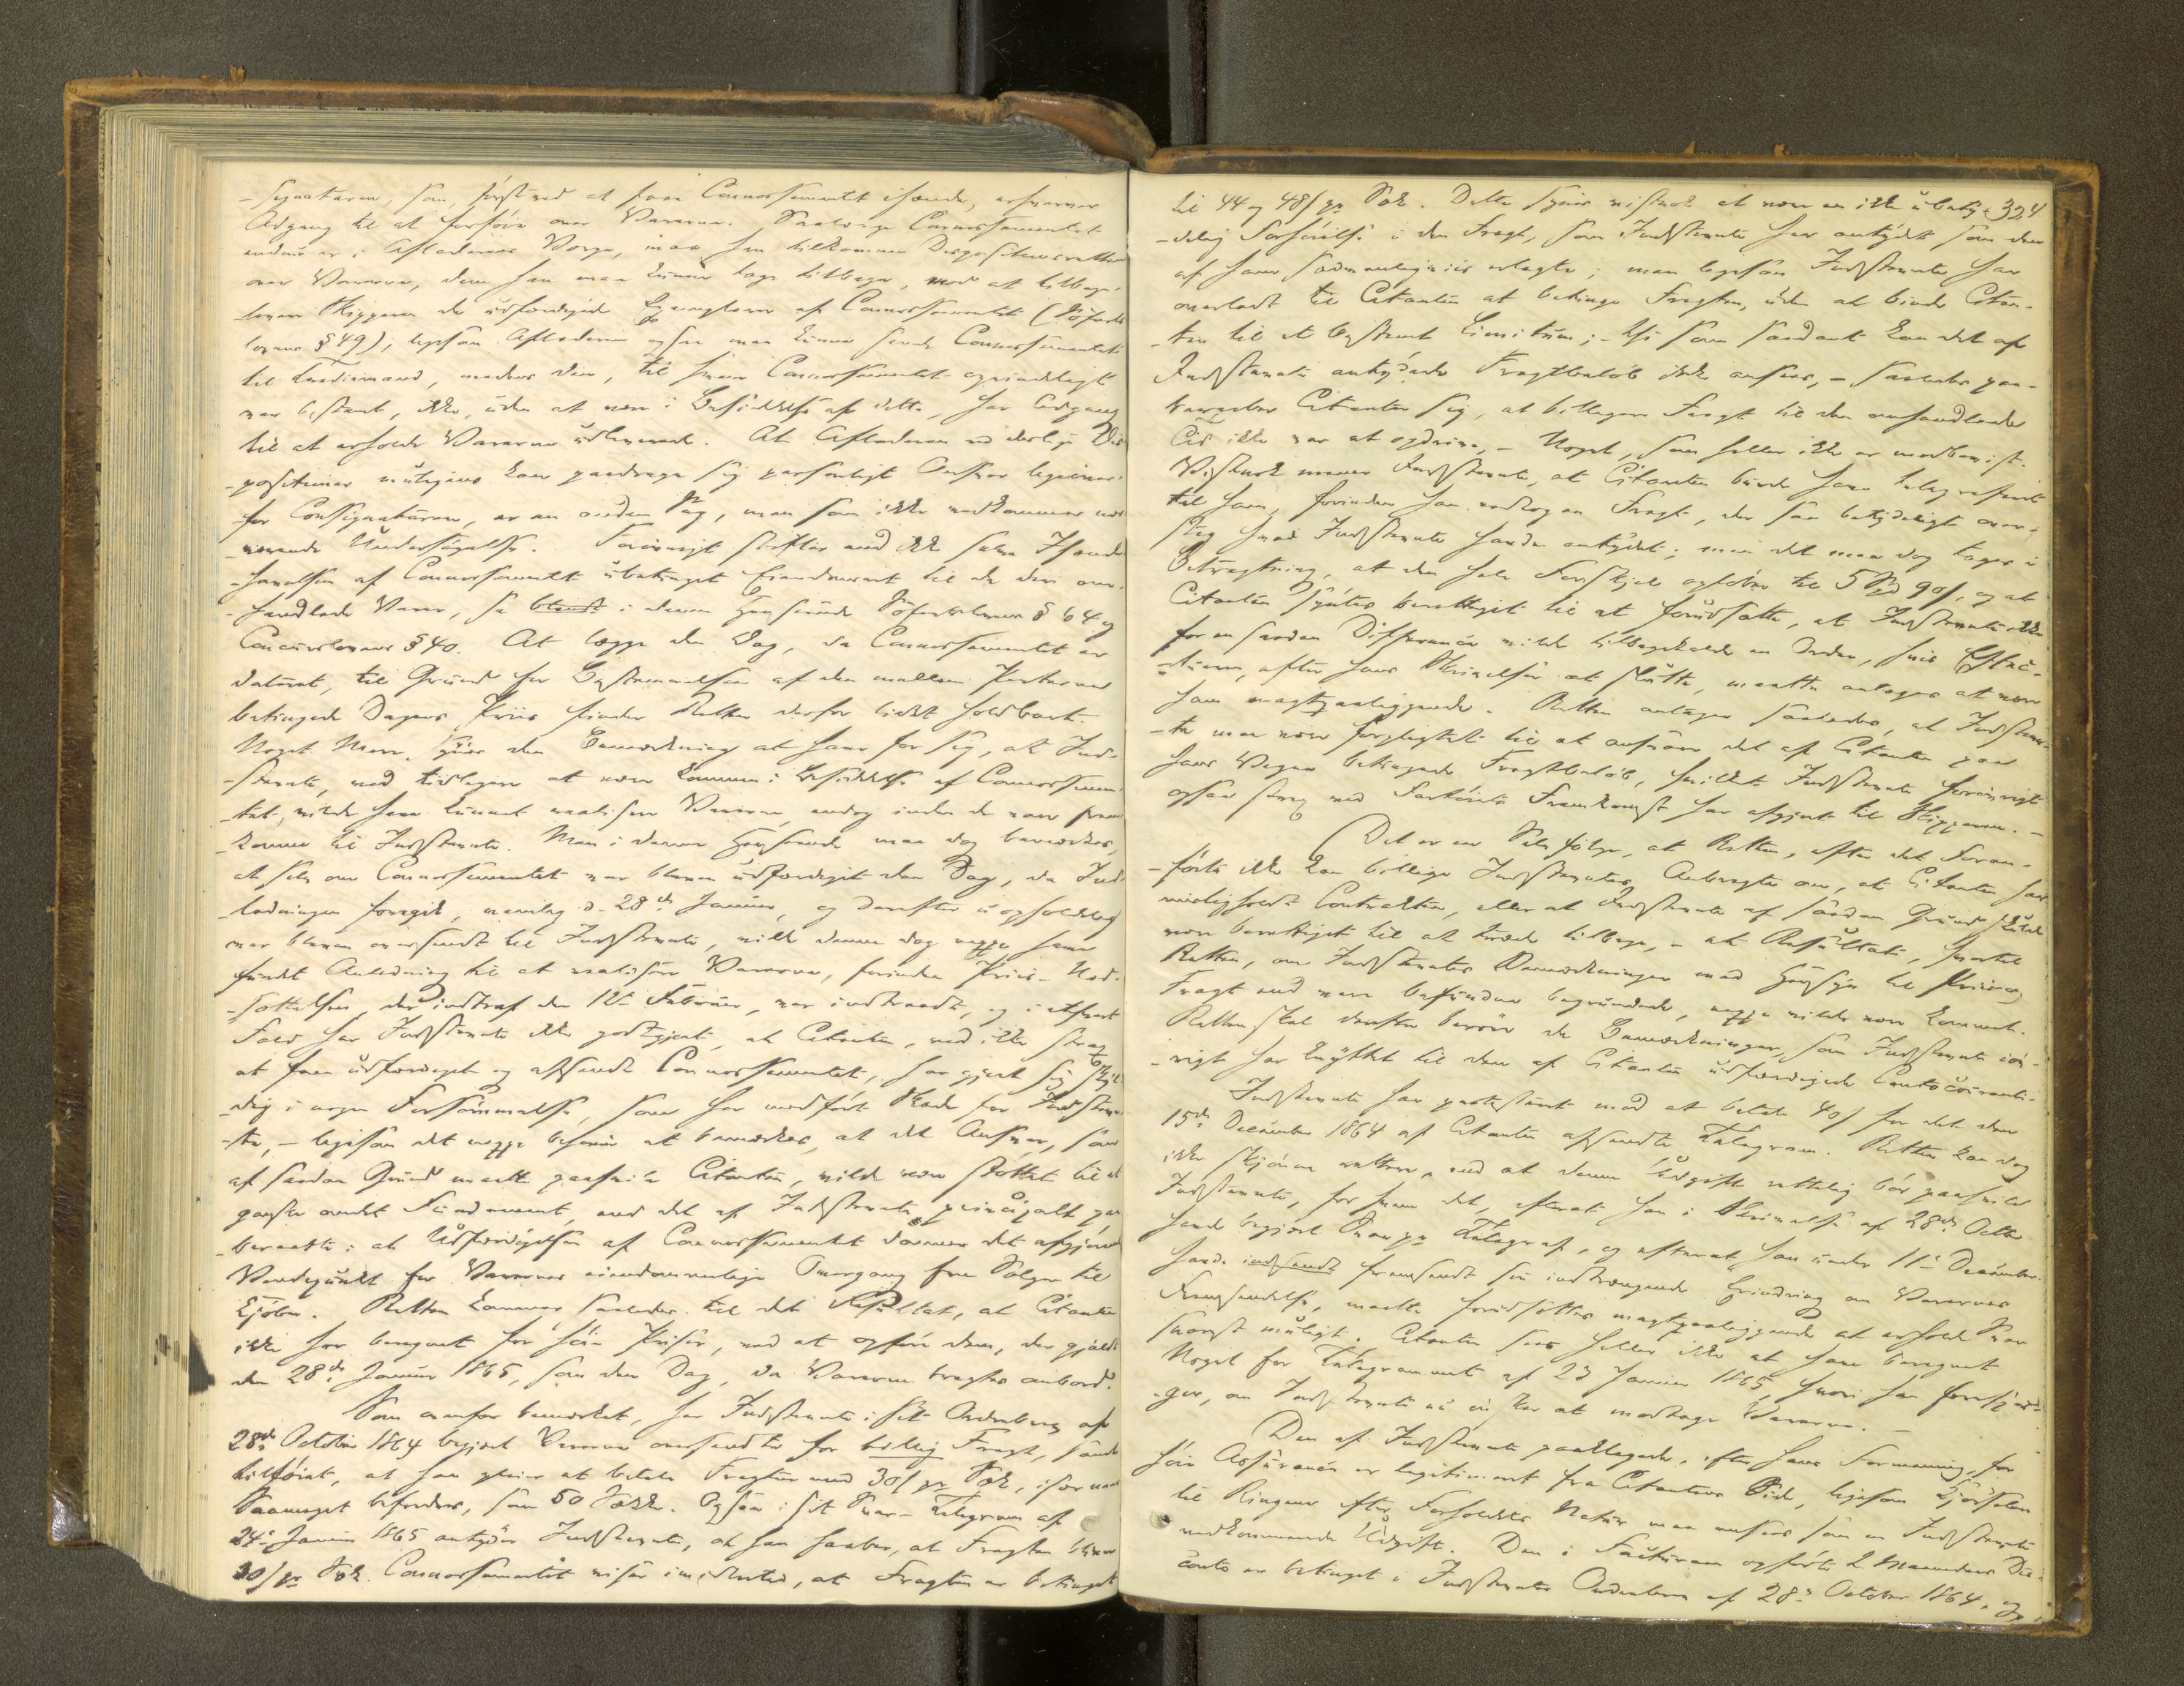 -signataren, som, først ved at faae Connossementet ihænde, erhverver
Adgang til at forføie over Varerne. Saalænge Connossementet
endnu er i Afladerens Værge, maa ham tilkomme Dispositionsretten
over Varerne, dem han maa kunne tage tilbage, mod at tilbage-
levere Skipperen de udfærdigede Exemplarer af Connossementet (Søfarts
lovens § 49), ligesom Afladeren ogsaa maa kunne sende Connossementet
til Trediemand, medens den, til hvem Connossementet oprindeligt
var bestemt, ikke, uden at være i Besiddelse af dette, har Adgang
til at erholde Varerne udleverede. At Afladeren ved deslige Dis-
-positioner muligens kan paadrage sig personligt Ansvar ligeover-
for Consignataren, er en anden Sag, men som ikke vedkommer nær-
-værende Undersøgelse. Forøvrigt stifter end ikke selve Ihænde-
-havelsen af Connossementet ubetinget Eiendomsret til de deri om-
-handlede Varer, se blandt i denne Henseende Søfartslovens § 64 og
Concurslovens § 40. At lægge den Dag, da Connossementet er
dateret, til Grund for Bestemmelsen af den mellem Parterne
betingede Dagens Priis finder Retten derfor lidet holdbart.
Noget Mere synes den Bemærkning at have for sig, at Ind-
-stevnte, ved tidligere at være kommen i Besiddelse af Connossemen-
-tet, vilde have kunnet realisere Varerne, endog inden de vare frem-
-komne til Indstevnte. Men i denne Henseende maa dog bemærkes,
at selv om Connossementet var bleven udfærdiget den Dag, da Ind-
-ladningen foregik, nemlig d. 28de Januar, og derefter uopholdelig
var bleven oversendt til Indstevnte, vilde denne dog neppe have
fundet Anledning til at realisere Varerne, forinden Priis-Ned-
-sættelsen, der indtraf den 12te Februar, var indtraadt, og i ethvert
Fald har Indstevnte ikke godtgjort, at Citanten, ved ikke strax
at faae udfærdiget og afsendt Connossementet, har gjort sig skyl-
-dig i nogen Forsømmelse, som har medført Skade for Indstevn-
-te, – ligesom det neppe behøver at bemærkes, at det Ansvar, som
af saadan Grund maatte paahvile Citanten, vilde være støttet til et
ganske andet Fundament, end det af Indstevnte principalt paa-
-beraabte: at Udfærdigelsen af Connossementet danner det afgjørende
Vendepunkt for Varernes eiendommelige Overgang fra Sælger til
Kjøber. Retten kommer saaledes til det Resultat, at Citanten
ikke har beregnet for høie Priser, ved at opføre dem, der gjaldt
den 28de Januar 1865, som den Dag, da Varerne bragtes ombord.
Som ovenfor bemærket, har Indstevnte i sit Ordrebrev af
28de October 1864 begjært Varerne oversendte for billig Fragt,
tilføiet, at han pleier at betale Fragten med 30 s pr. Sæk, især naar
Saameget befordres, som 50 Sække. Ogsaa i sit Svar-Telegram af
24de Januar 1865 antyder Indstevnte, at han haaber, at Fragten bliver
30 s pr. Sæk. Connossementet viser imidlertid, at Fragten er betinget
324
til 44 og 48 s pr. Sæk. Dette synes vistnok at være en ikke ubetyde-
-delig Forhøielse i den Fragt, som Indstevnte har antydet som den
af ham sædvanligviis erlagte; men ligesom Indstevnte har
overladt til Citanten at betinge Fragten, uden at binde Citan-
-ten til et bestemt Limitum; – thi som saadant kan det af
Indstevnte antydede Fragtbeløb ikke ansees, – saaledes paa-
beraaber Citanten sig, at billigere Fragt til den omhandlede
Tid ikke var at opdrive, – Noget, som heller ikke er modbeviist.
Vistnok mener Indstevnte, at Citanten burde have telegrapheret
til ham, forinden han vedtog en Fragt, der saa betydeligt over-
steg hvad Indstevnte havde antydet; men det maa dog tages i
Betragtning, at den hele Forskjel opløber til 5 Spd 90 s, og at
Citanten syntes berettiget til at forudsætte, at Indstevnte ikke
for en saadan Difference vilde tilbagekalde en Ordre, hvis Effec-
-tuering, efter hans Skrivelser at slutte, maatte antages at være
ham magtpaaliggende. Retten antager saaledes, at Indstevn-
-te maa være forpligtet til at ansvare det af Citanten paa
hans Vegne betingede Fragtbeløb, hvilket Indstevnte forøvrigt
ogsaa strax ved Fartøiets Fremkomst har afgjort til Skipperen. –
Det er en Selvfølge, at Retten, efter det Foran-
-førte ikke kan billige Indstevntes Anbragte om, at Citanten har
misligholdt Contracten, eller at Indstevnte af saadan Grund skulde
være berettiget til at træde tilbage, – et Resultat, hvortil
Retten, om Indstevntes Bemærkninger med Hensyn til Priis og
Fragt end vare befundne begrundede, neppe vilde være kommet.
Retten skal derefter berøre de Bemærkninger, som Indstevnte iøv-
-rigt har knyttet til den af Citanten udfærdigede Contocourant.
Indstevnte har protesteret mod at betale 40 s for det den
15de December 1864 af Citanten afsendte Telegram. Retten kan dog
ikke skjønne rettere, end at denne Udgift rettelig bør paahvile
Indstevnte, for hvem det, efterat han i Skrivelse af 28de Octbr
havde begjært Svar pr. Telegraf, og efterat han under 11te December
havde indsendt fremsendt sin indtrængende Erindring om Varernes
Fremsendelse, maatte forudsættes magtpaaliggende at erholde Svar
snarest muligt. Citanten sees heller ikke at have beregnet
Noget for Telegrammet af 23 Januar 1865, hvori han forespør-
-ger, om Indstevnte nu ønsker at modtage Varerne. –
Den af Indstevnte paaklagede, efter hans Formening, for
høie Assurance er legitimeret fra Citantens Side, ligesom Kjørselen
til Ringen efter Forholdets Natur maa ansees som en Indstevnte
vedkommende Udgift. Den i Facturaen opførte 2 Maaneders Dis-
conto er betinget i Indstevntes Ordrebrev af 28de October 1864, og